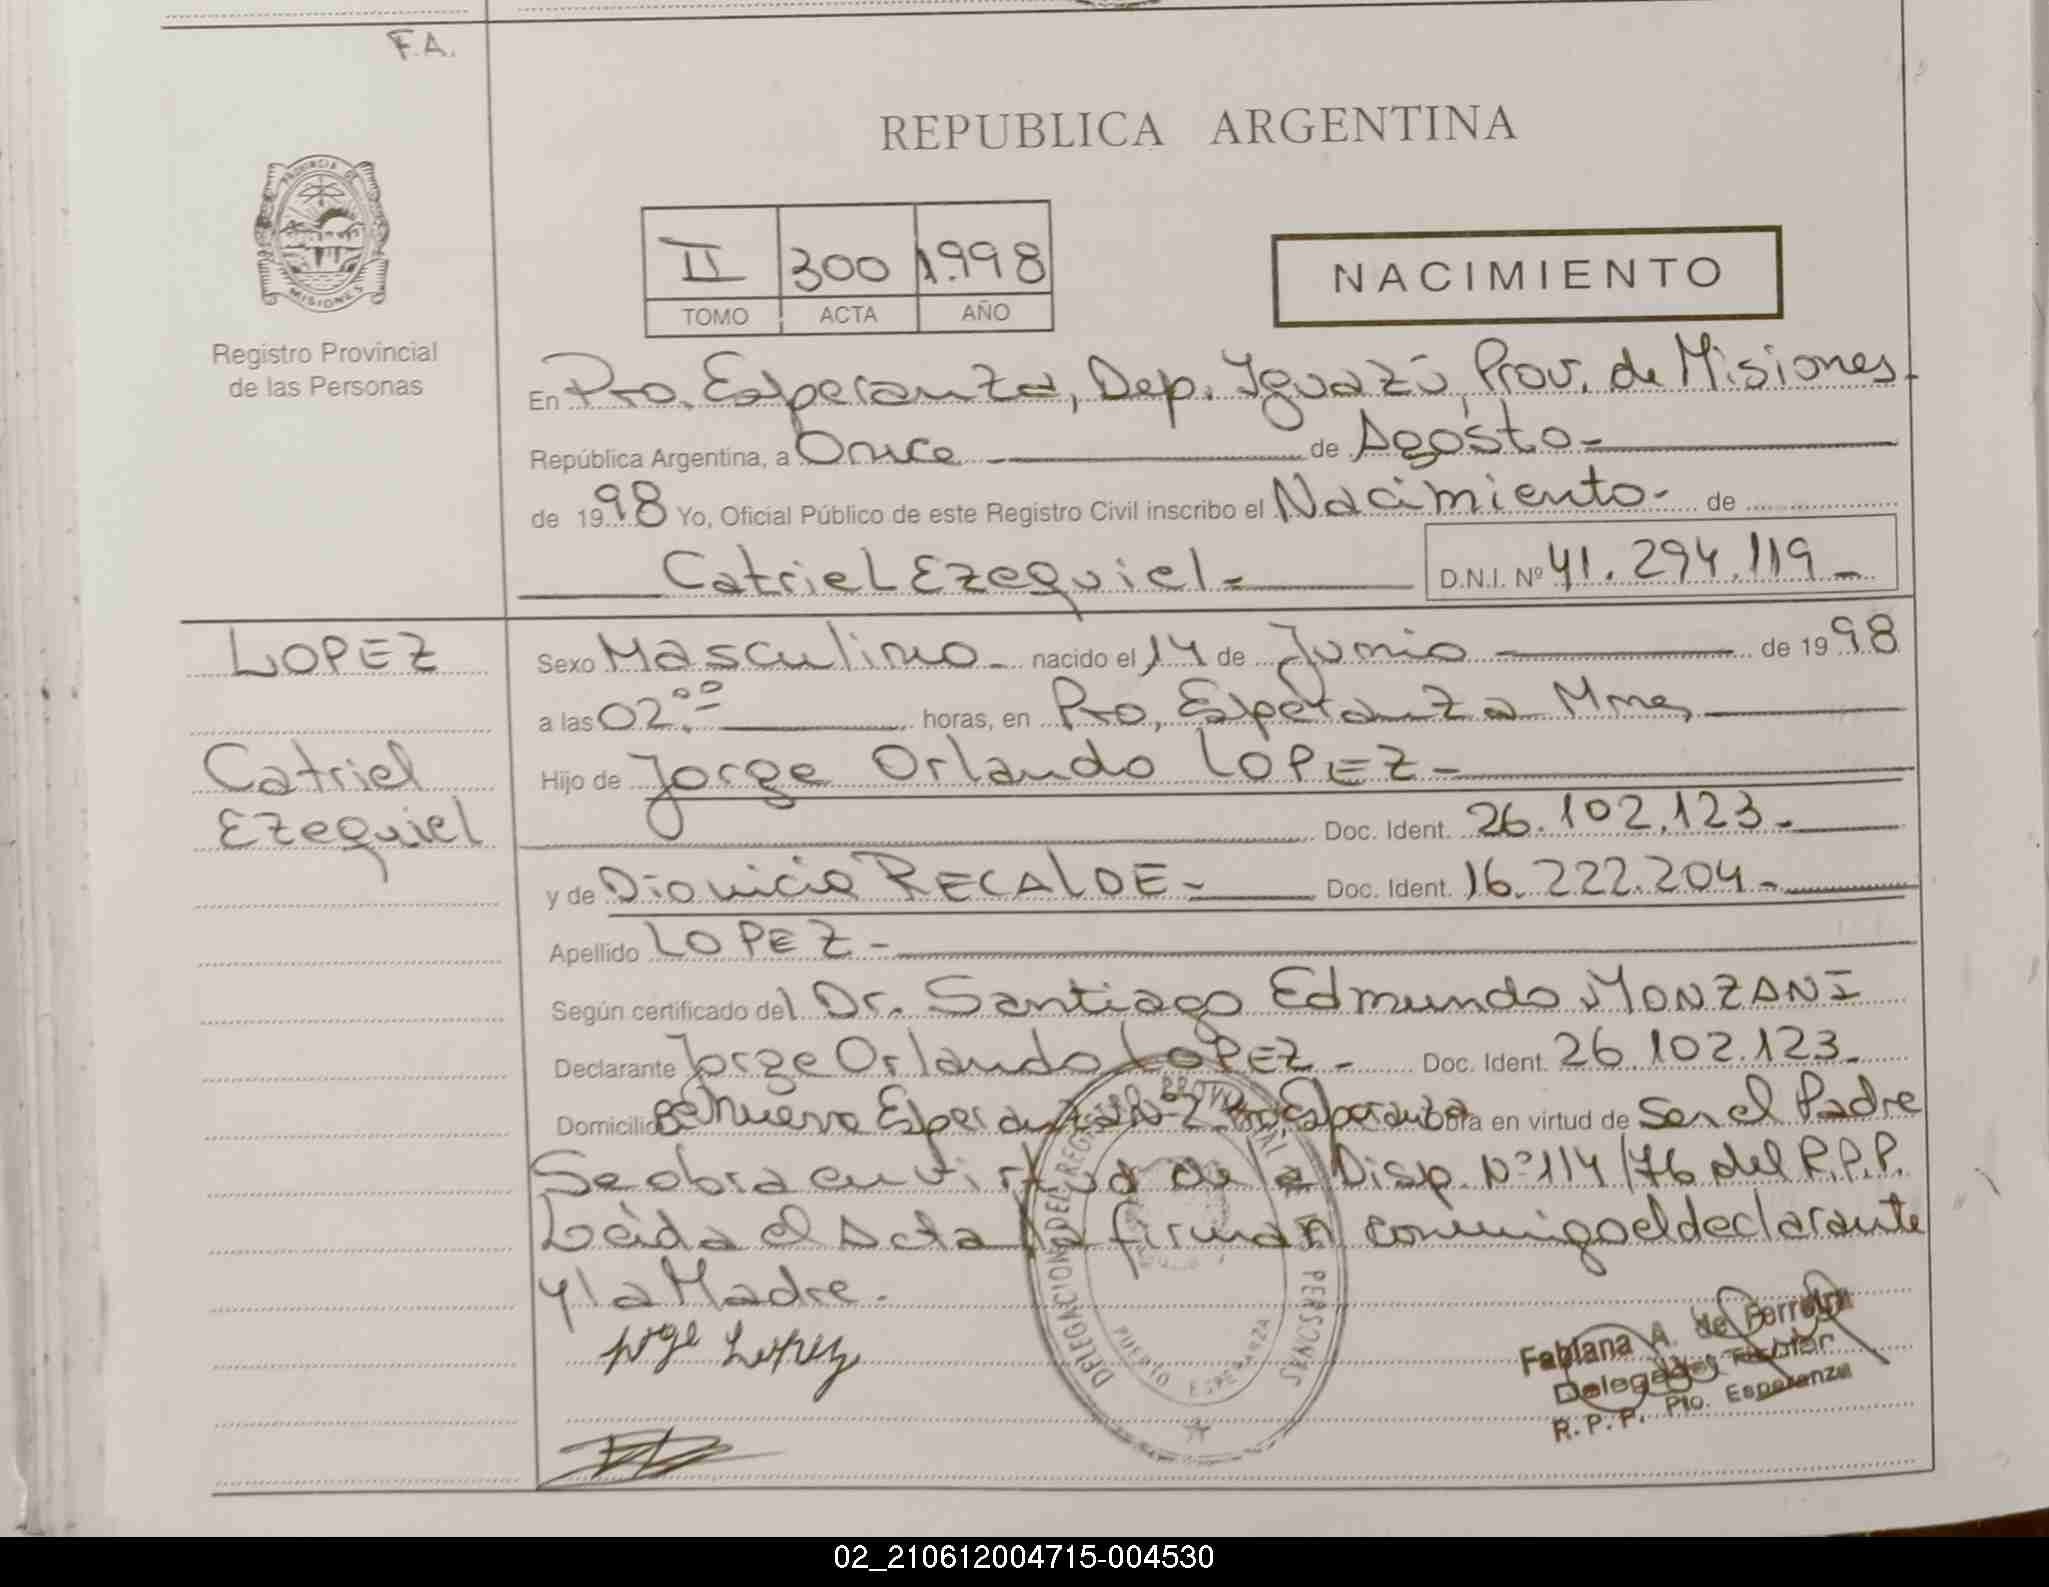 F.A.
REPUBLICA ARGENTINA
PROVINCIA DE
MISIONES
Registro Provincial
de las Personas
II 300 1.998
TOMO ACTA AÑO
NACIMIENTO
En Pto. Esperanza, Dep. Iguazú, Prov. de Misiones.
República Argentina, a Once de Agosto-
de 1998 Yo, Oficial Público de este Registro Civil inscribo el Nacimiento- de
Catriel Ezequiel- D.N.I. Nº 41.294.119-
LOPEZ
Catriel
Ezequiel
Sexo Masculino- nacido el 14 de Junio de 1998
a las 02:00 horas, en Pto. Esperanza Mnes
Hijo de Jorge Orlando LOPEZ-
Doc. Ident. 26.102.123-
y de Dionicia RECALDE- Doc. Ident. 16.222.204-
Apellido LOPEZ-
Según certificado del Dr. Santiago Edmundo MONZANI
Declarante Jorge Orlando LOPEZ- Doc. Ident. 26.102.123-
Domicilio Bº Nueva Esperanza Pto. Esperanza obra en virtud de ser el Padre
Se obra en virtud de la Disp. Nº 114/76 del R.P.P.
Leída el Acta la firman conmigo el declarante
y la Madre.
Jorge Lopez
DELEGACION DEL REGISTRO PROVINCIAL PERSONAS
PUERTO ESPERANZA
Fabiana A. de Ferreira
Delegada Titular
R.P.P. Pto. Esperanza
02_210612004715-004530